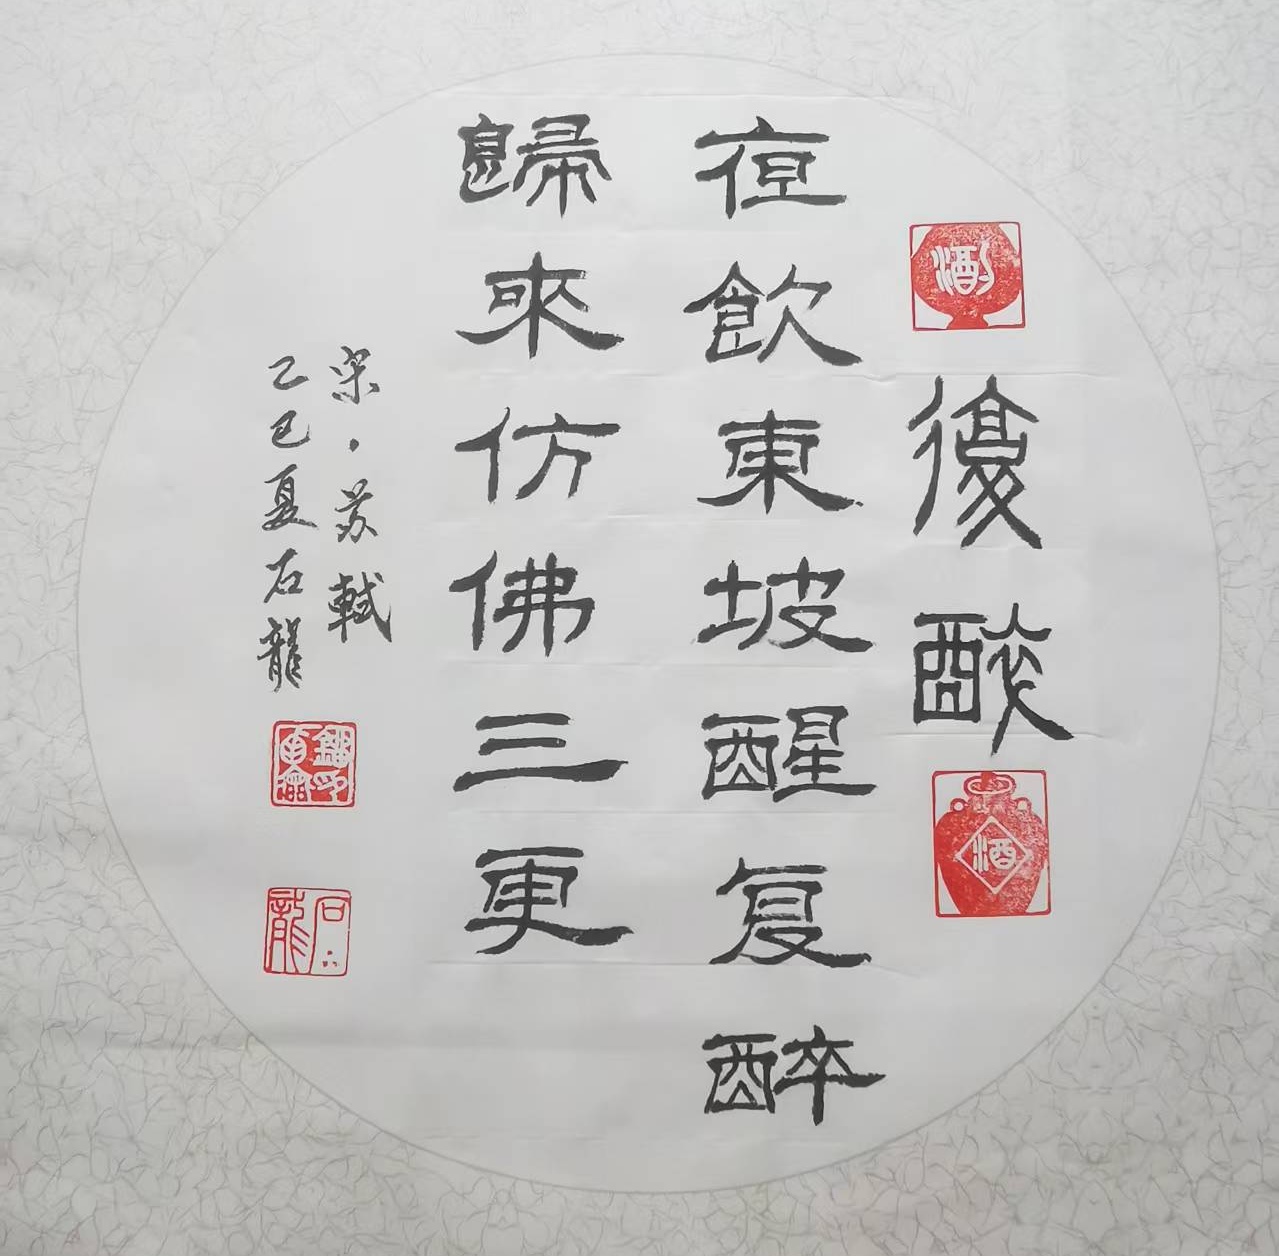 酒
復醉
酒
夜飲東坡醒复醉
歸來仿佛三更
宋·苏軾
乙巳夏石龍
石龍